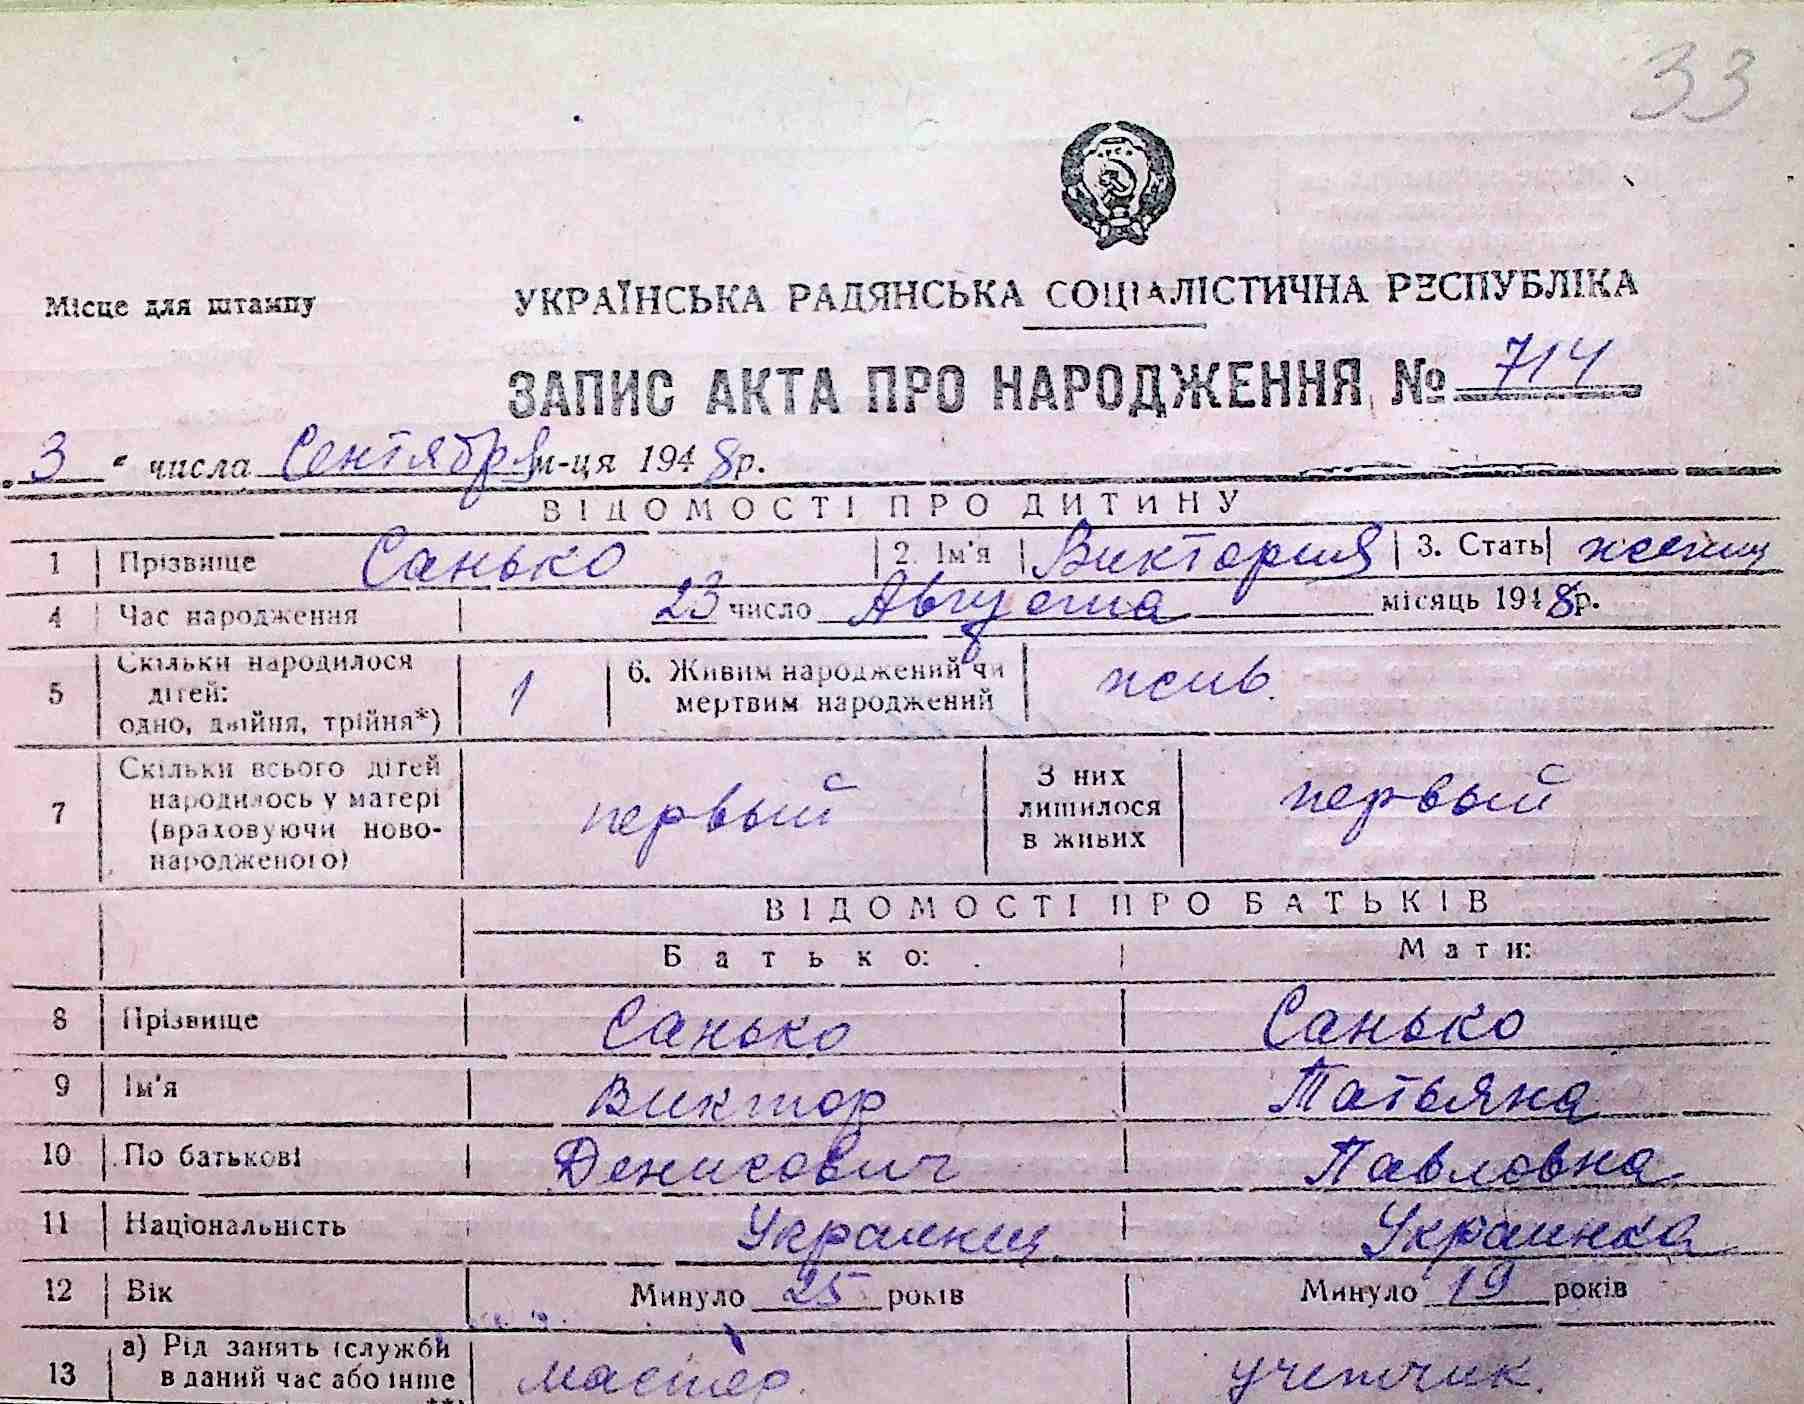 33
Місце для штампу
УКРАЇНСЬКА РАДЯНСЬКА СОЦІАЛІСТИЧНА РЕСПУБЛІКА
ЗАПИС АКТА ПРО НАРОДЖЕННЯ № 714
„3“ числа Сентября м-ця 1948 р.
ВІДОМОСТІ ПРО ДИТИНУ
1 Прізвище Санько 2. Ім'я Виктория 3. Стать женщ
4 Час народження 23 число Августа місяць 1948 р.
5 Скільки народилося дітей: одно, двійня, трійня*) 1 6. Живим народжений чи мертвим народжений жив.
7 Скільки всього дітей народилось у матері (враховуючи новонародженого) первый З них лишилося в живих первый
ВІДОМОСТІ ПРО БАТЬКІВ
Батько: Мати:
8 Прізвище Санько Санько
9 Ім'я Виктор Татьяна
10 По батькові Денисович Павловна
11 Національність Украинец Украинка
12 Вік Минуло 25 років Минуло 19 років
13 а) Рід занять (служби в даний час або інше мастер учетчик.